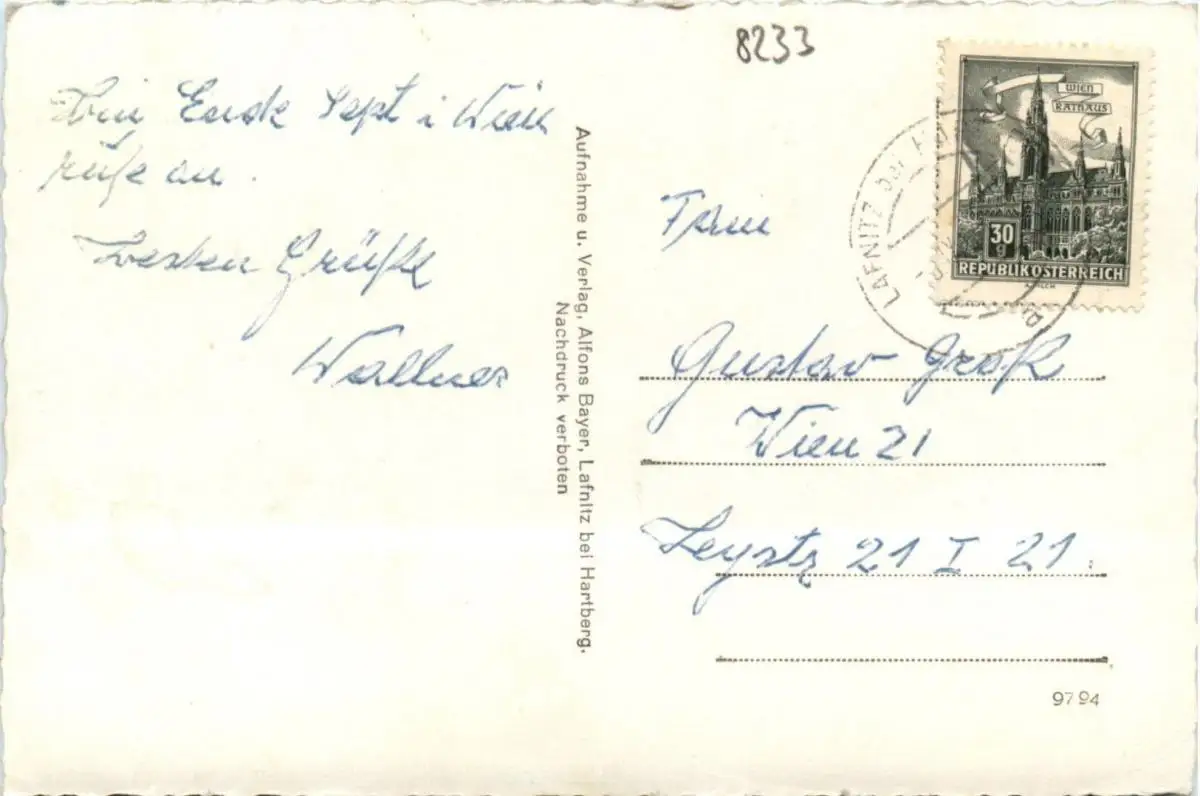 8233
Bin Ende Sept i Wien
rufe an.
Besten Grüße
Wallner
Aufnahme u. Verlag, Alfons Bayer, Lafnitz bei Hartberg.
Nachdruck verboten
WIEN
RATHAUS
30
g
REPUBLIK ÖSTERREICH
LAFNITZ bei
Gustav
Wien 21
21 I 21
9794